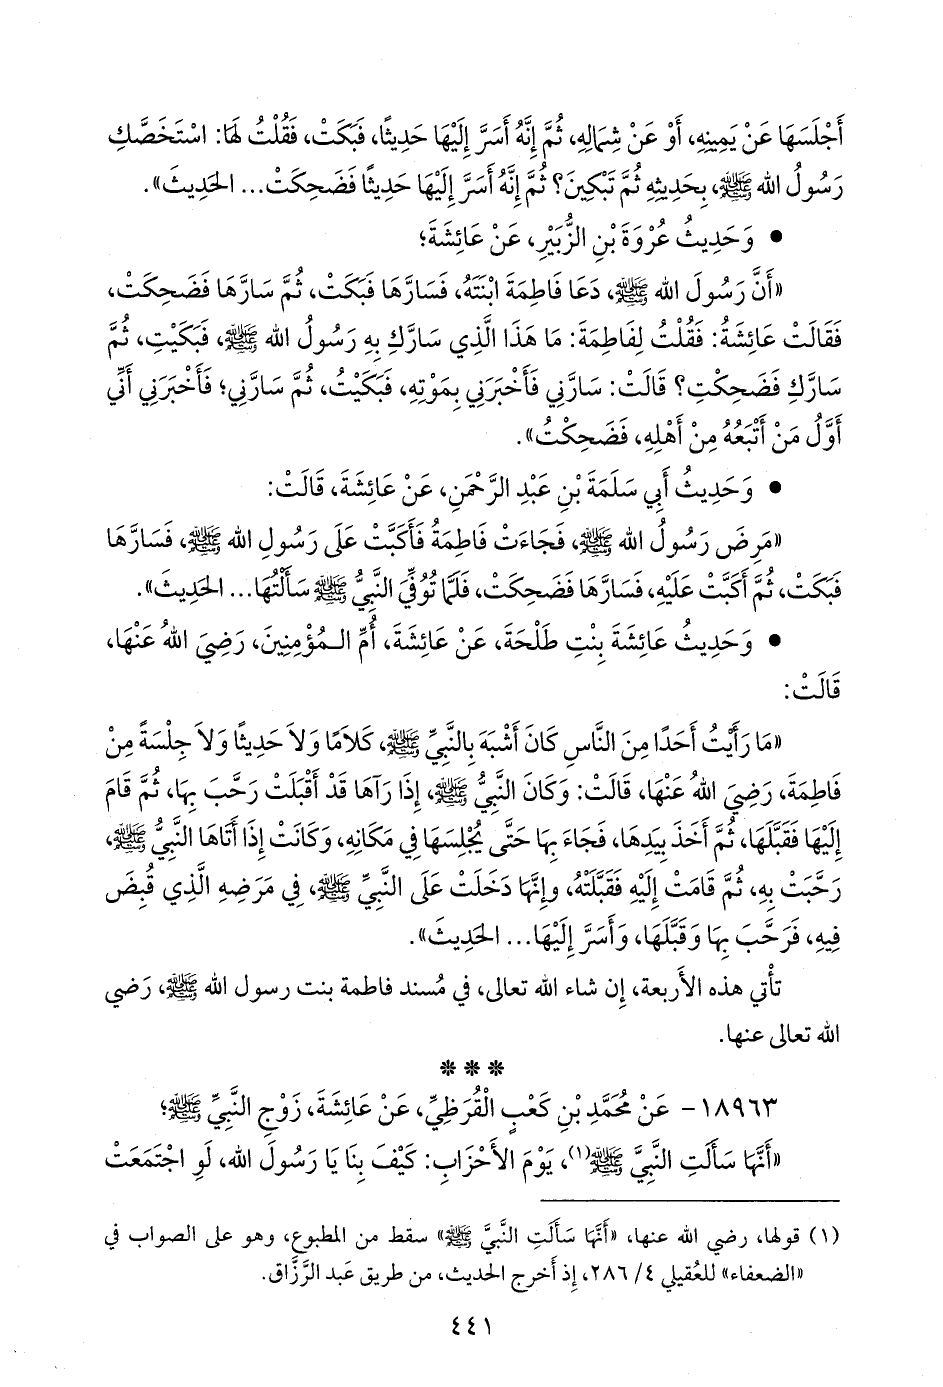 أَجْلَسَهَا عَنْ يَمِينِهِ، أَوْ عَنْ شِمَالِهِ، ثُمَّ إِنَّهُ أَسَرَّ إِلَيْهَا حَدِيثًا، فَبَكَتْ، فَقُلْتُ لَهَا: اسْتَخَصَّكِ
رَسُولُ الله ﷺ، بِحَدِيثِهِ ثُمَّ تَبْكِينَ؟ ثُمَّ إِنَّهُ أَسَرَّ إِلَيْهَا حَدِيثًا فَضَحِكَتْ... الحَدِيثَ».
• وَحَدِيثُ عُرْوَةَ بْنِ الزُّبَيْرِ، عَنْ عَائِشَةَ؛
«أَنَّ رَسُولَ الله ﷺ، دَعَا فَاطِمَةَ ابْنَتَهُ، فَسَارَّهَا فَبَكَتْ، ثُمَّ سَارَّهَا فَضَحِكَتْ،
فَقَالَتْ عَائِشَةُ: فَقُلْتُ لِفَاطِمَةَ: مَا هَذَا الَّذِي سَارَّكِ بِهِ رَسُولُ الله ﷺ، فَبَكَيْتِ، ثُمَّ
سَارَّكِ فَضَحِكْتِ؟ قَالَتْ: سَارَّنِي فَأَخْبَرَنِي بِمَوْتِهِ، فَبَكَيْتُ، ثُمَّ سَارَّنِي؛ فَأَخْبَرَنِي أَنِّي
أَوَّلُ مَنْ أَتْبَعُهُ مِنْ أَهْلِهِ، فَضَحِكْتُ».
• وَحَدِيثُ أَبِي سَلَمَةَ بْنِ عَبْدِ الرَّحْمَنِ، عَنْ عَائِشَةَ، قَالَتْ:
«مَرِضَ رَسُولُ الله ﷺ، فَجَاءَتْ فَاطِمَةُ فَأَكَبَّتْ عَلَى رَسُولِ الله ﷺ، فَسَارَّهَا
فَبَكَتْ، ثُمَّ أَكَبَّتْ عَلَيْهِ، فَسَارَّهَا فَضَحِكَتْ، فَلَمَّا تُوُفِّيَ النَّبِيُّ ﷺ سَأَلْتُهَا... الحَدِيثَ».
• وَحَدِيثُ عَائِشَةَ بِنْتِ طَلْحَةَ، عَنْ عَائِشَةَ، أُمِّ الـمُؤْمِنِينَ، رَضِيَ اللهُ عَنْهَا،
قَالَتْ:
«مَا رَأَيْتُ أَحَدًا مِنَ النَّاسِ كَانَ أَشْبَهَ بِالنَّبِيِّ ﷺ، كَلَامًا وَلاَ حَدِيثًا وَلاَ جِلْسَةً مِنْ
فَاطِمَةَ، رَضِيَ اللهُ عَنْهَا، قَالَتْ: وَكَانَ النَّبِيُّ ﷺ، إِذَا رَآهَا قَدْ أَقْبَلَتْ رَحَّبَ بِهَا، ثُمَّ قَامَ
إِلَيْهَا فَقَبَّلَهَا، ثُمَّ أَخَذَ بِيَدِهَا، فَجَاءَ بِهَا حَتَّى يُجْلِسَهَا فِي مَكَانِهِ، وَكَانَتْ إِذَا أَتَاهَا النَّبِيُّ ﷺ،
رَحَّبَتْ بِهِ، ثُمَّ قَامَتْ إِلَيْهِ فَقَبَّلَتْهُ، وإِنَّهَا دَخَلَتْ عَلَى النَّبِيِّ ﷺ، فِي مَرَضِهِ الَّذِي قُبِضَ
فِيهِ، فَرَحَّبَ بِهَا وَقَبَّلَهَا، وَأَسَرَّ إِلَيْهَا... الحَدِيثَ».
تأتي هذه الأَربعة، إِن شاء الله تعالى، في مُسند فاطمة بنت رسول الله ﷺ، رَضي
الله تعالى عنها.
* * *
١٨٩٦٣- عَنْ مُحَمَّدِ بْنِ كَعْبٍ الْقُرَظِيِّ، عَنْ عَائِشَةَ، زَوْجِ النَّبِيِّ ﷺ؛
«أَنَّهَا سَأَلَتِ النَّبِيَّ ﷺ(١)، يَوْمَ الأَحْزَابِ: كَيْفَ بِنَا يَا رَسُولَ الله، لَوِ اجْتَمَعَتْ
(١) قولها، رضي الله عنها، «أَنَّهَا سَأَلَتِ النَّبِيَّ ﷺ» سقط من المطبوع، وهو على الصواب في
«الضعفاء» للعُقيلي ٤/ ٢٨٦، إِذ أَخرج الحديث، من طريق عَبد الرَّزَّاق.
٤٤١